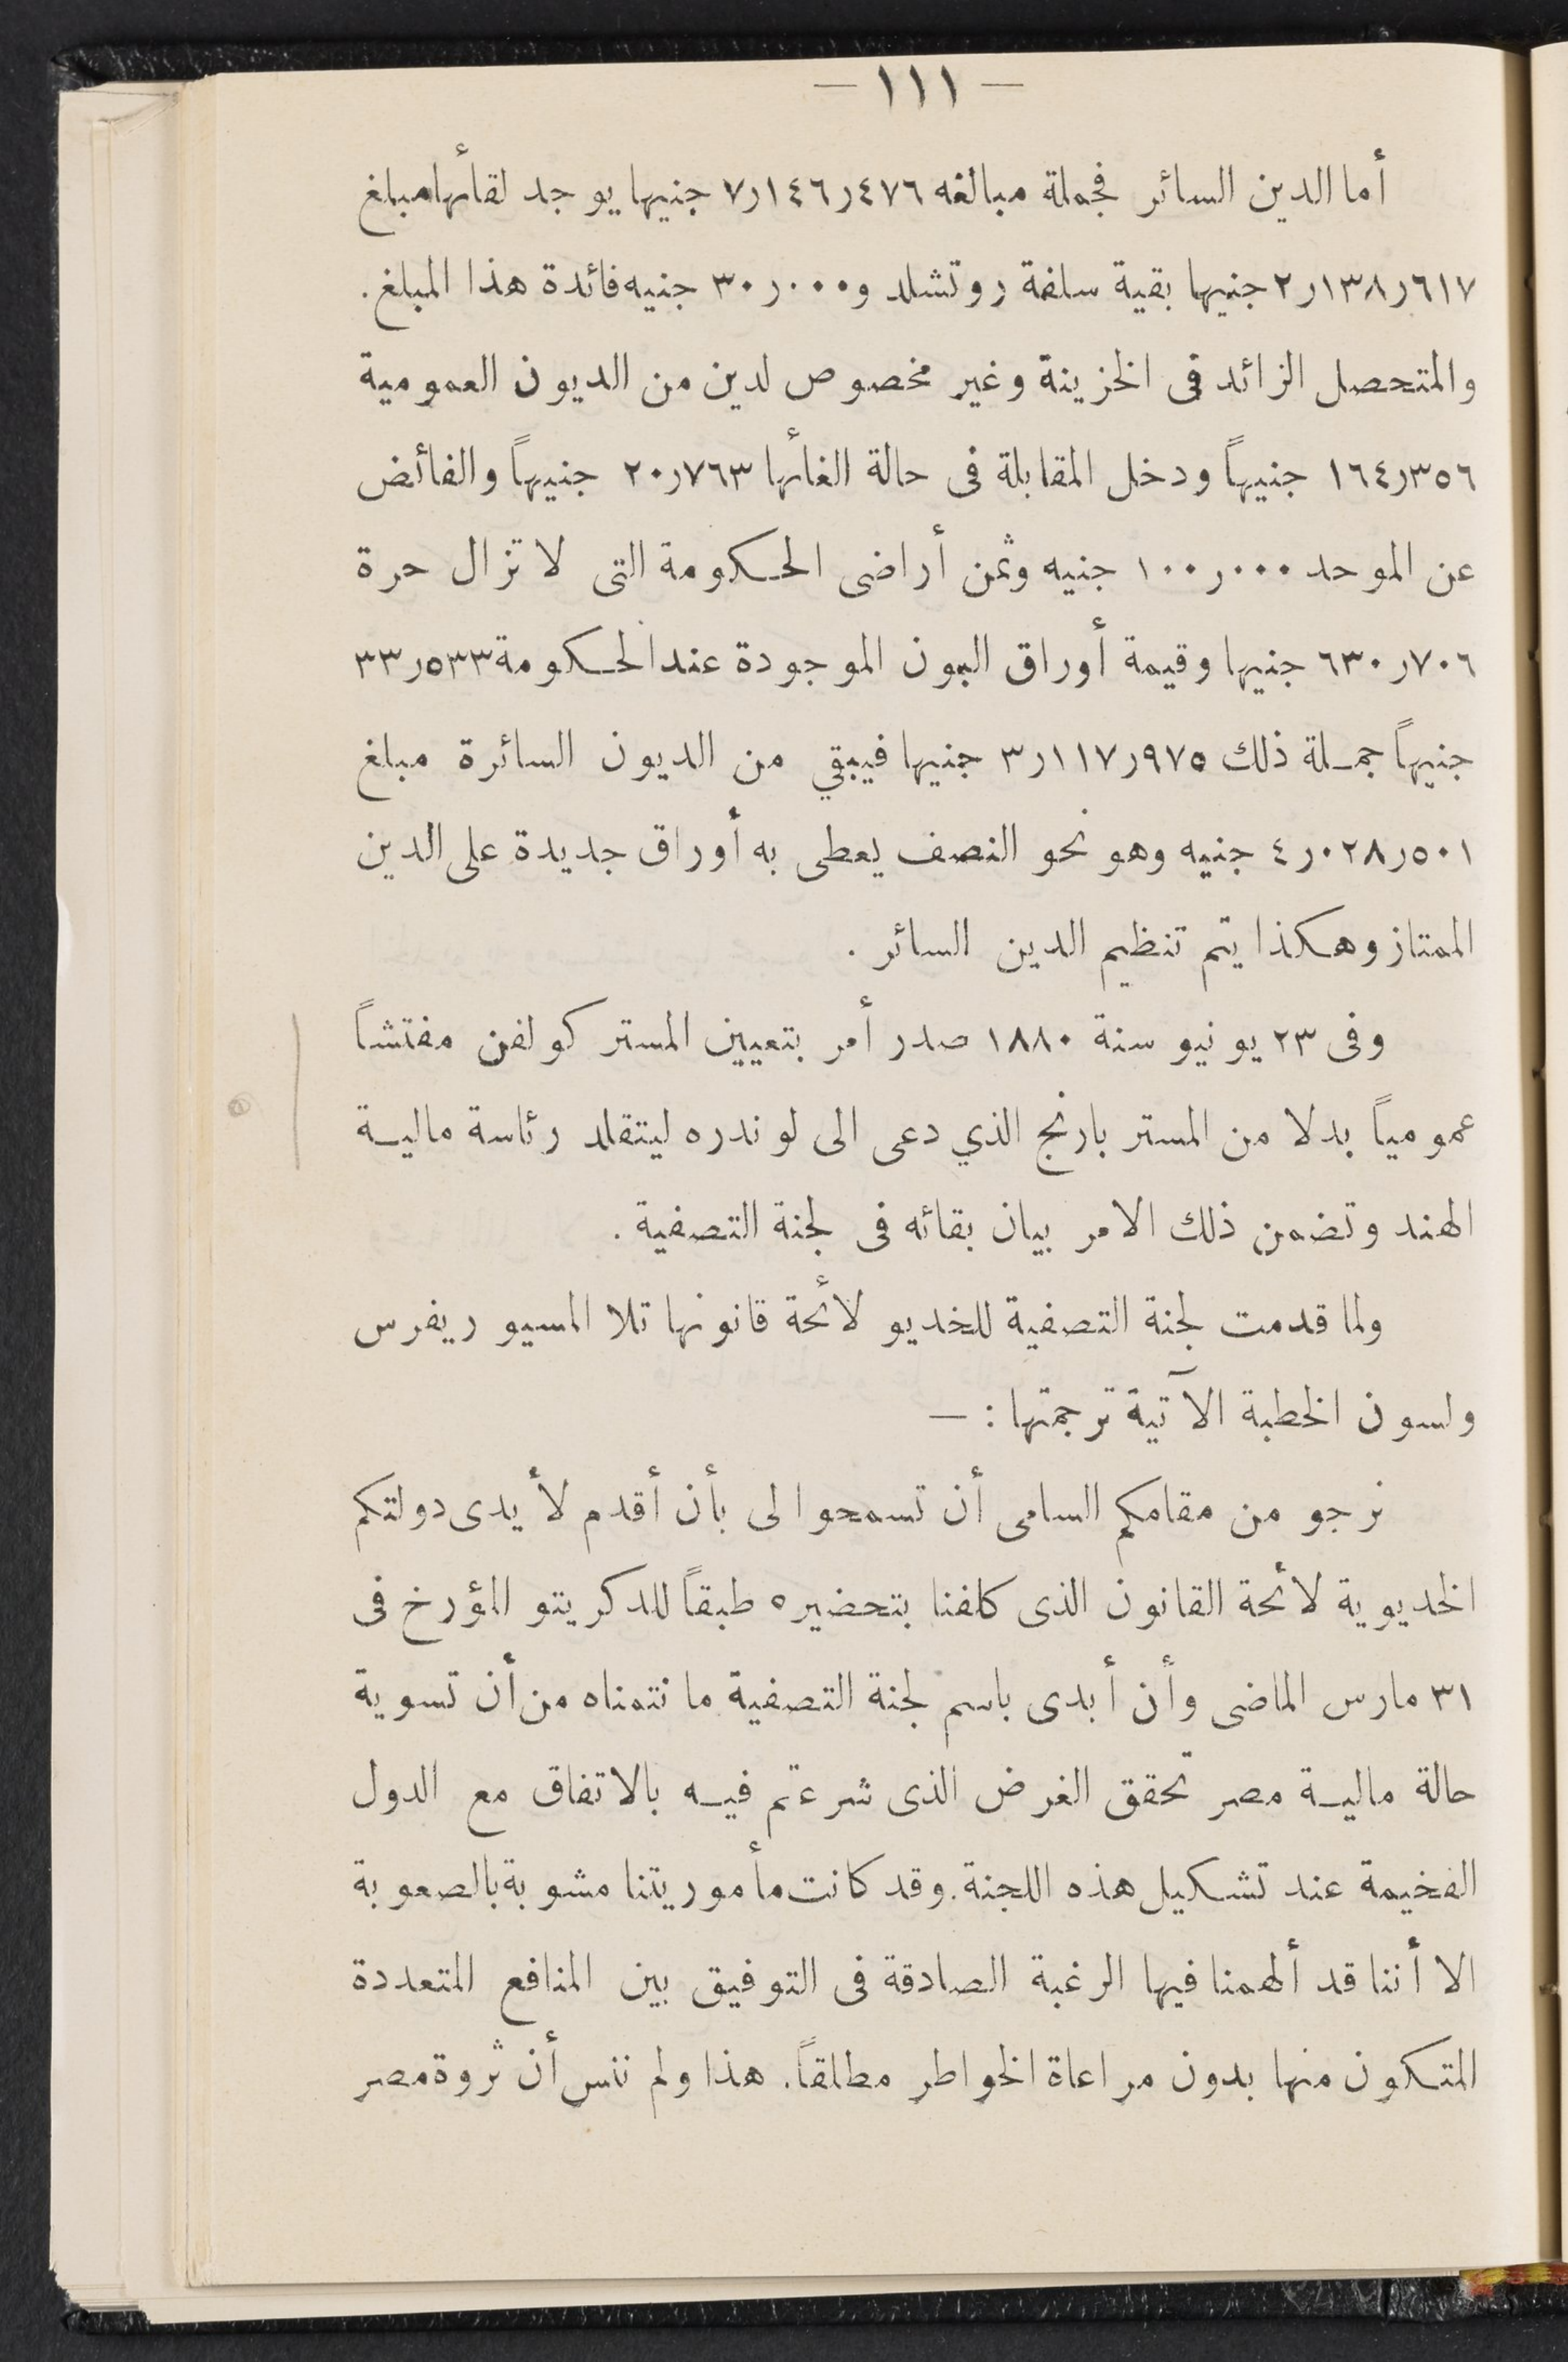 — ١١١ —
أما الدين السائر فجملة مبالغه ٧٫١٤٦٫٤٧٦ جنيها يوجد لقأئها مبلغ
٢٫١٣٨٫٦١٧ جنيها بقية سلفة روتشلد و ٣٠٫٠٠٠ جنيه فائدة هذا المبلغ .
والمتحصل الزائد فى الخزينة وغير مخصوص لدين من الديون العمومية
١٦٤٫٣٥٦ جنيهاً ودخل المقابلة فى حالة الغأئها ٢٠٫٧٦٣ جنيهاً والفائض
عن الموحد ١٠٠٫٠٠٠ جنيه وثمن أراضى الحكومة التى لا تزال حرة
٦٣٠٫٧٠٦ جنيها وقيمة أوراق البون الموجودة عند الحكومة ٣٣٫٥٣٣
جنيهاً جملة ذلك ٣٫١١٧٫٩٧٥ جنيها فيبقي من الديون السائرة مبلغ
٤٫٠٢٨٫٥٠١ جنيه وهو نحو النصف يعطى به أوراق جديدة على الدين
الممتاز وهكذا يتم تنظيم الدين السائر .
وفى ٢٣ يونيو سنة ١٨٨٠ صدر أمر بتعيين المستر كولفن مفتشاً
عمومياً بدلا من المستر بارنج الذي دعى الى لوندره ليتقلد رئاسة مالية
الهند وتضمن ذلك الامر بيان بقائه فى لجنة التصفية .
ولما قدمت لجنة التصفية للخديو لائحة قانونها تلا المسيو ريفرس
ولسون الخطبة الآتية ترجمتها : —
نرجو من مقامكم السامى أن تسمحوا لى بأن أقدم لأيدى دولتكم
الخديوية لائحة القانون الذى كلفنا بتحضيره طبقاً للدكريتو المؤرخ فى
٣١ مارس الماضى وأن أبدى باسم لجنة التصفية ما نتمناه من أن تسوية
حالة مالية مصر تحقق الغرض الذى شرعتم فيه بالاتفاق مع الدول
الفخيمة عند تشكيل هذه اللجنة . وقد كانت مأموريتنا مشوبة بالصعوبة
الا أننا قد ألهمنا فيها الرغبة الصادقة فى التوفيق بين المنافع المتعددة
المتكون منها بدون مراعاة الخواطر مطلقاً . هذا ولم ننس أن ثروة مصر